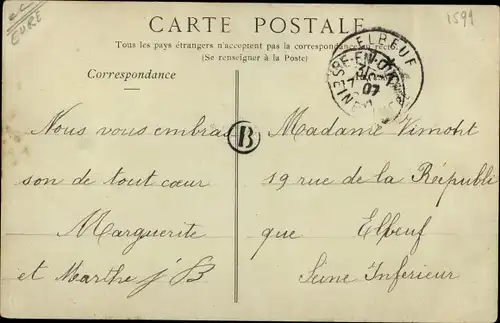 ec
EURE
1591
CARTE POSTALE
Tous les pays étrangers n'acceptent pas la correspondance au recto
(Se renseigner à la Poste)
Correspondance
ELBEUF
07
B
Nous vous embras
son de tout cœur
Marguerite
et Marthe J B
Madame Vimont
19 rue de la Républi
que Elbeuf
Seine Inferieur